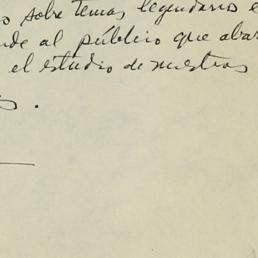 o sobre temas legendario e
nde al público que abar
el estudio de nuestros
s.